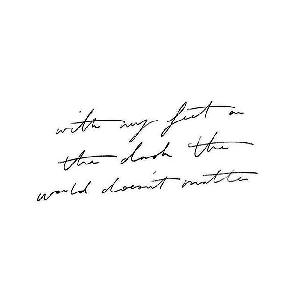 with my feet on
the dash the
world doesn't matter